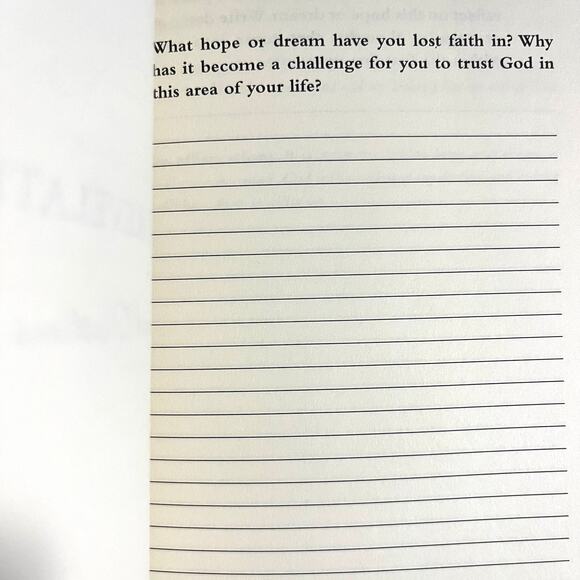 What hope or dream have you lost faith in? Why
has it become a challenge for you to trust God in
this area of your life?